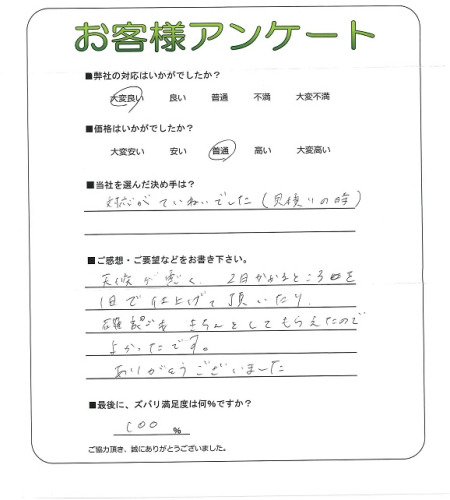 お客様アンケート
■弊社の対応はいかがでしたか?
大変良い 良い 普通 不満 大変不満
■価格はいかがでしたか?
大変安い 安い 普通 高い 大変高い
■当社を選んだ決め手は?
対応がていねいでした(見積りの時)
■ご感想・ご要望などをお書き下さい。
天候が悪く、2日かかるところを
1日で仕上げて頂いたり、
確認もきちんとしてもらえたので
よかったです。
ありがとうございました
■最後に、ズバリ満足度は何%ですか?
100 %
ご協力頂き、誠にありがとうございました。